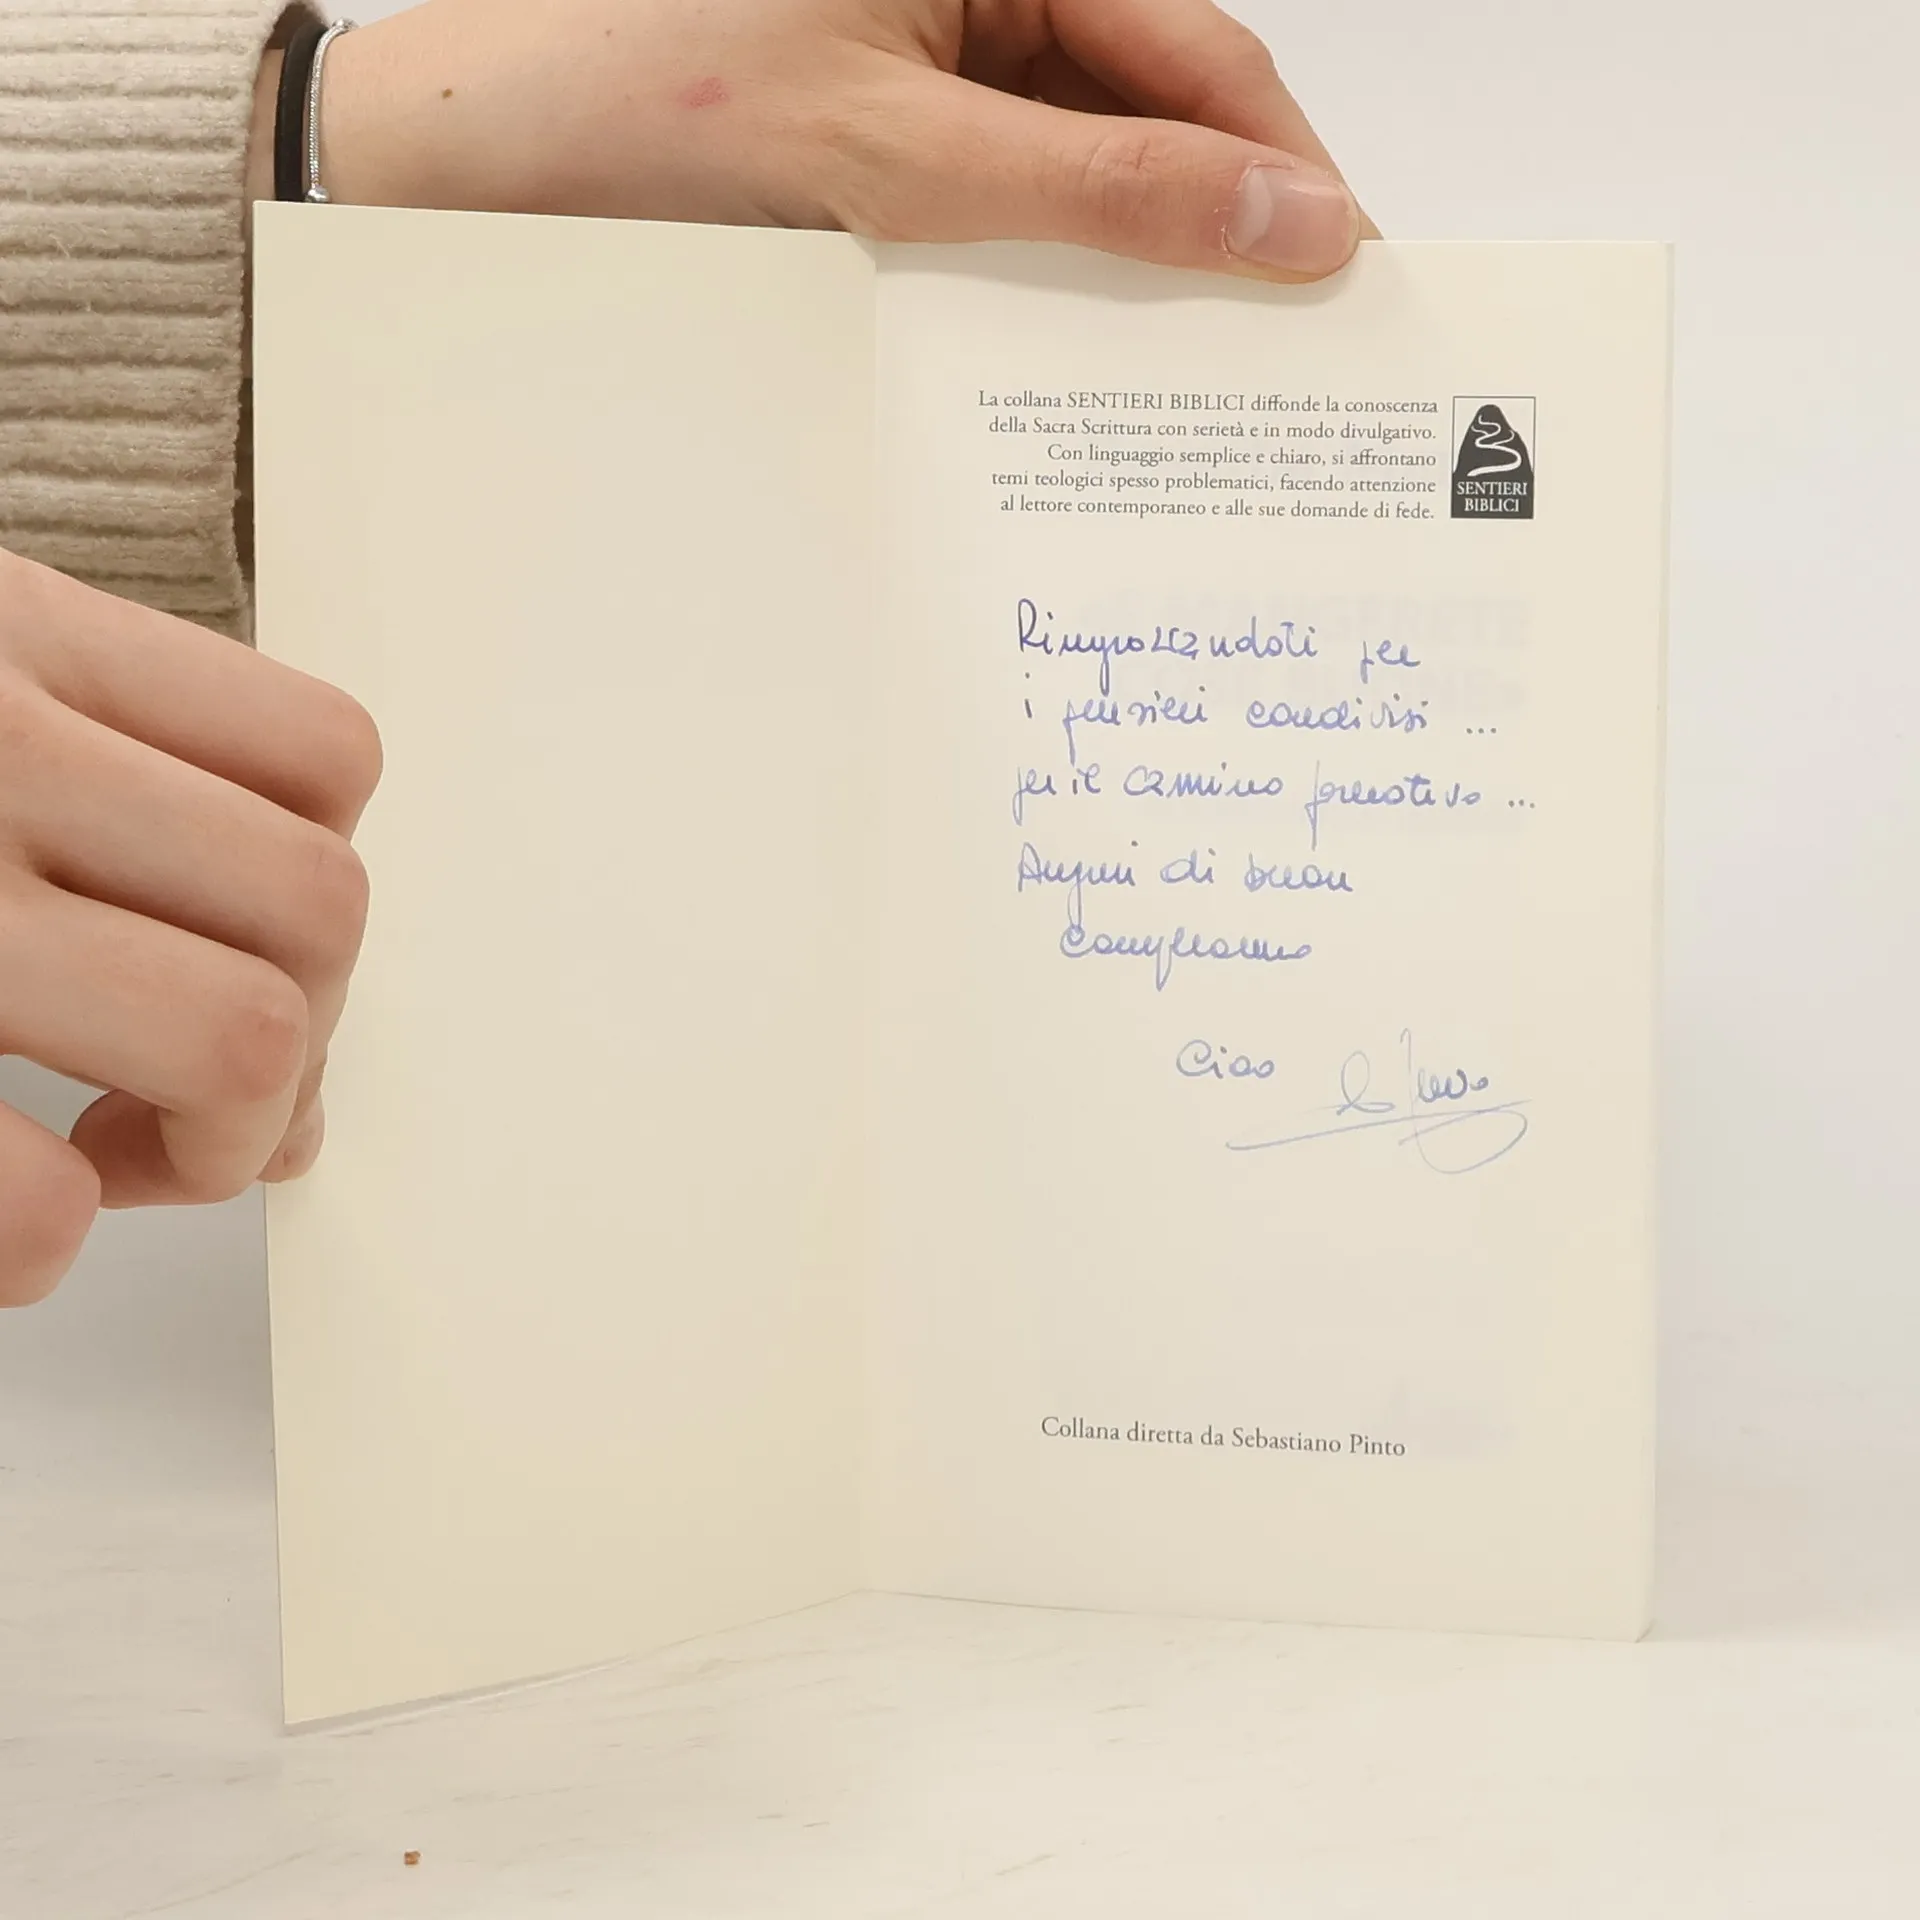 La collana SENTIERI BIBLICI diffonde la conoscenza
della Sacra Scrittura con serietà e in modo divulgativo.
Con linguaggio semplice e chiaro, si affrontano
temi teologici spesso problematici, facendo attenzione
al lettore contemporaneo e alle sue domande di fede.
SENTIERI
BIBLICI
Ringraziandoti per
i pensieri condivisi ...
per il cammino ...
Auguri di buon
compleanno
Ciao
Collana diretta da Sebastiano Pinto